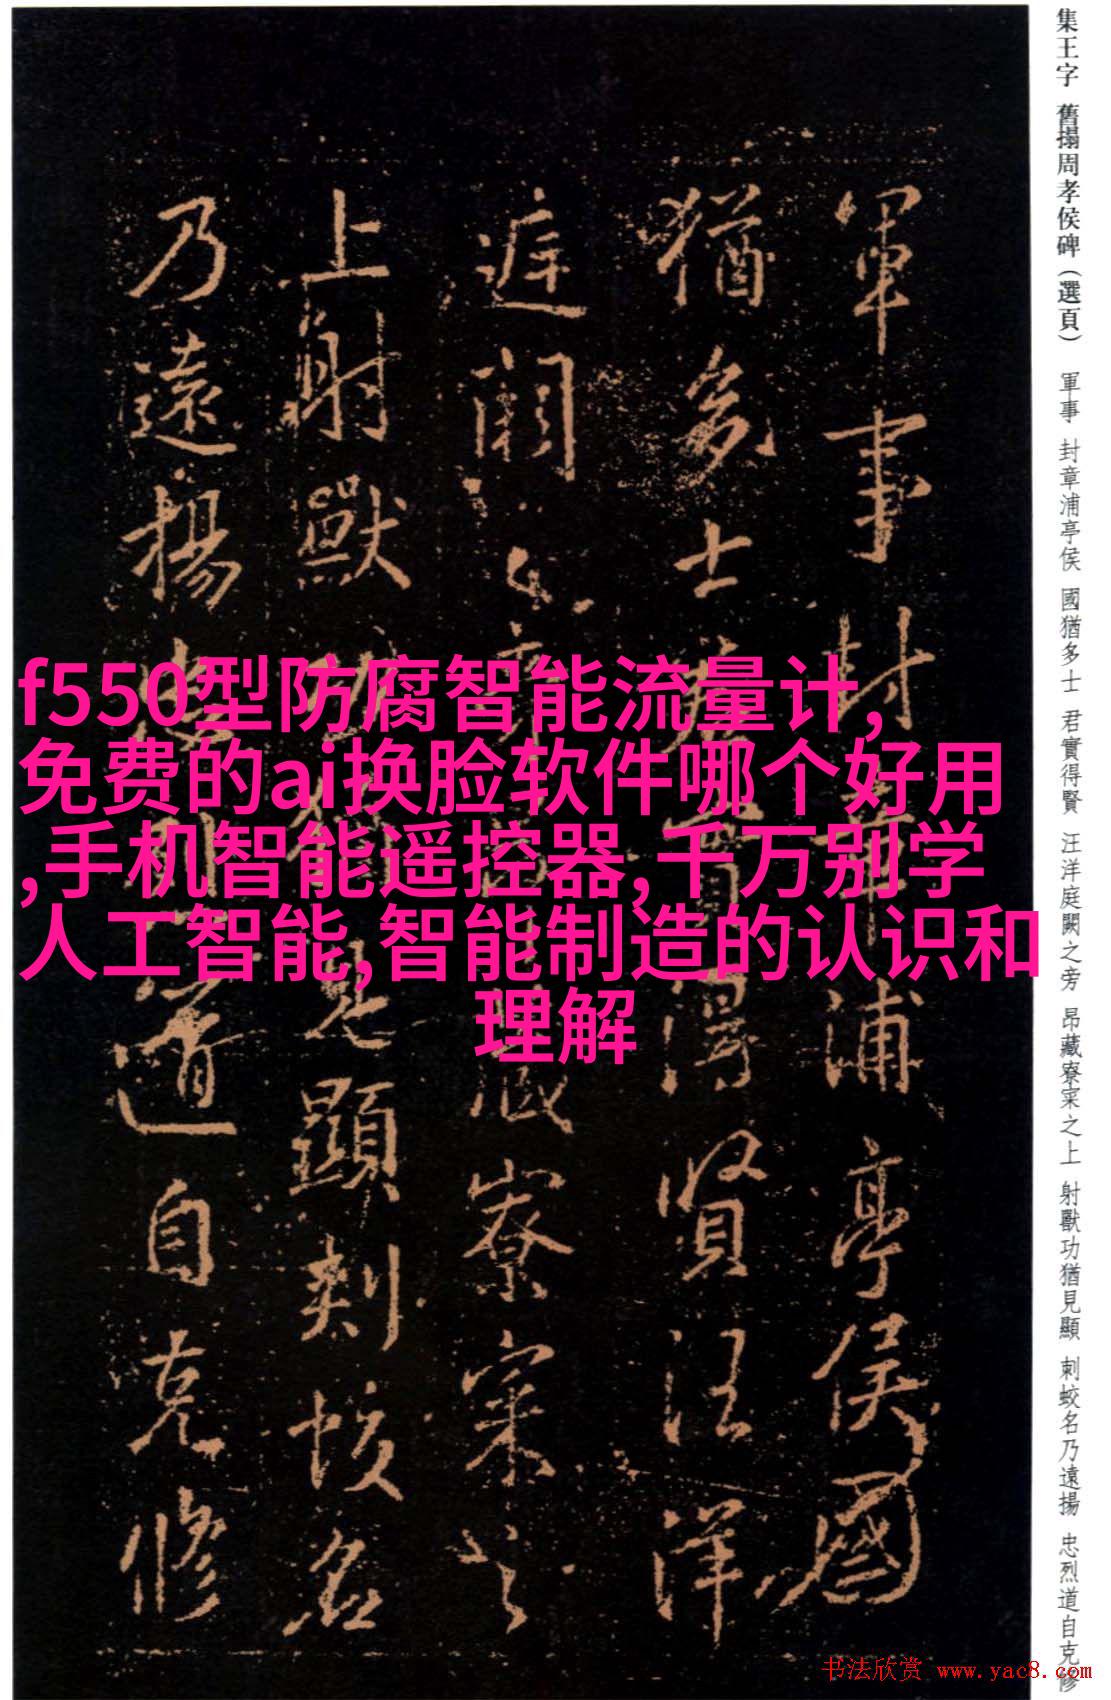 集王字 舊搨周孝侯碑（選頁） 軍事 封章浦亭侯 國猶多士 君實得賢 汪洋庭闕之旁 昂藏寮寀之上 射獸功猶見顯 刺蛟名乃遠揚 忠烈道自克修
軍事封章浦亭侯國
猶多士君實得賢汪洋
庭闕之旁昂藏寮寀之
上射獸功猶見顯刺蛟名
乃遠揚忠烈道自克修
f550型防腐智能流量计,
免费的ai换脸软件哪个好用
,手机智能遥控器,千万别学
人工智能,智能制造的认识和
理解
书法欣赏 www.yac8.com